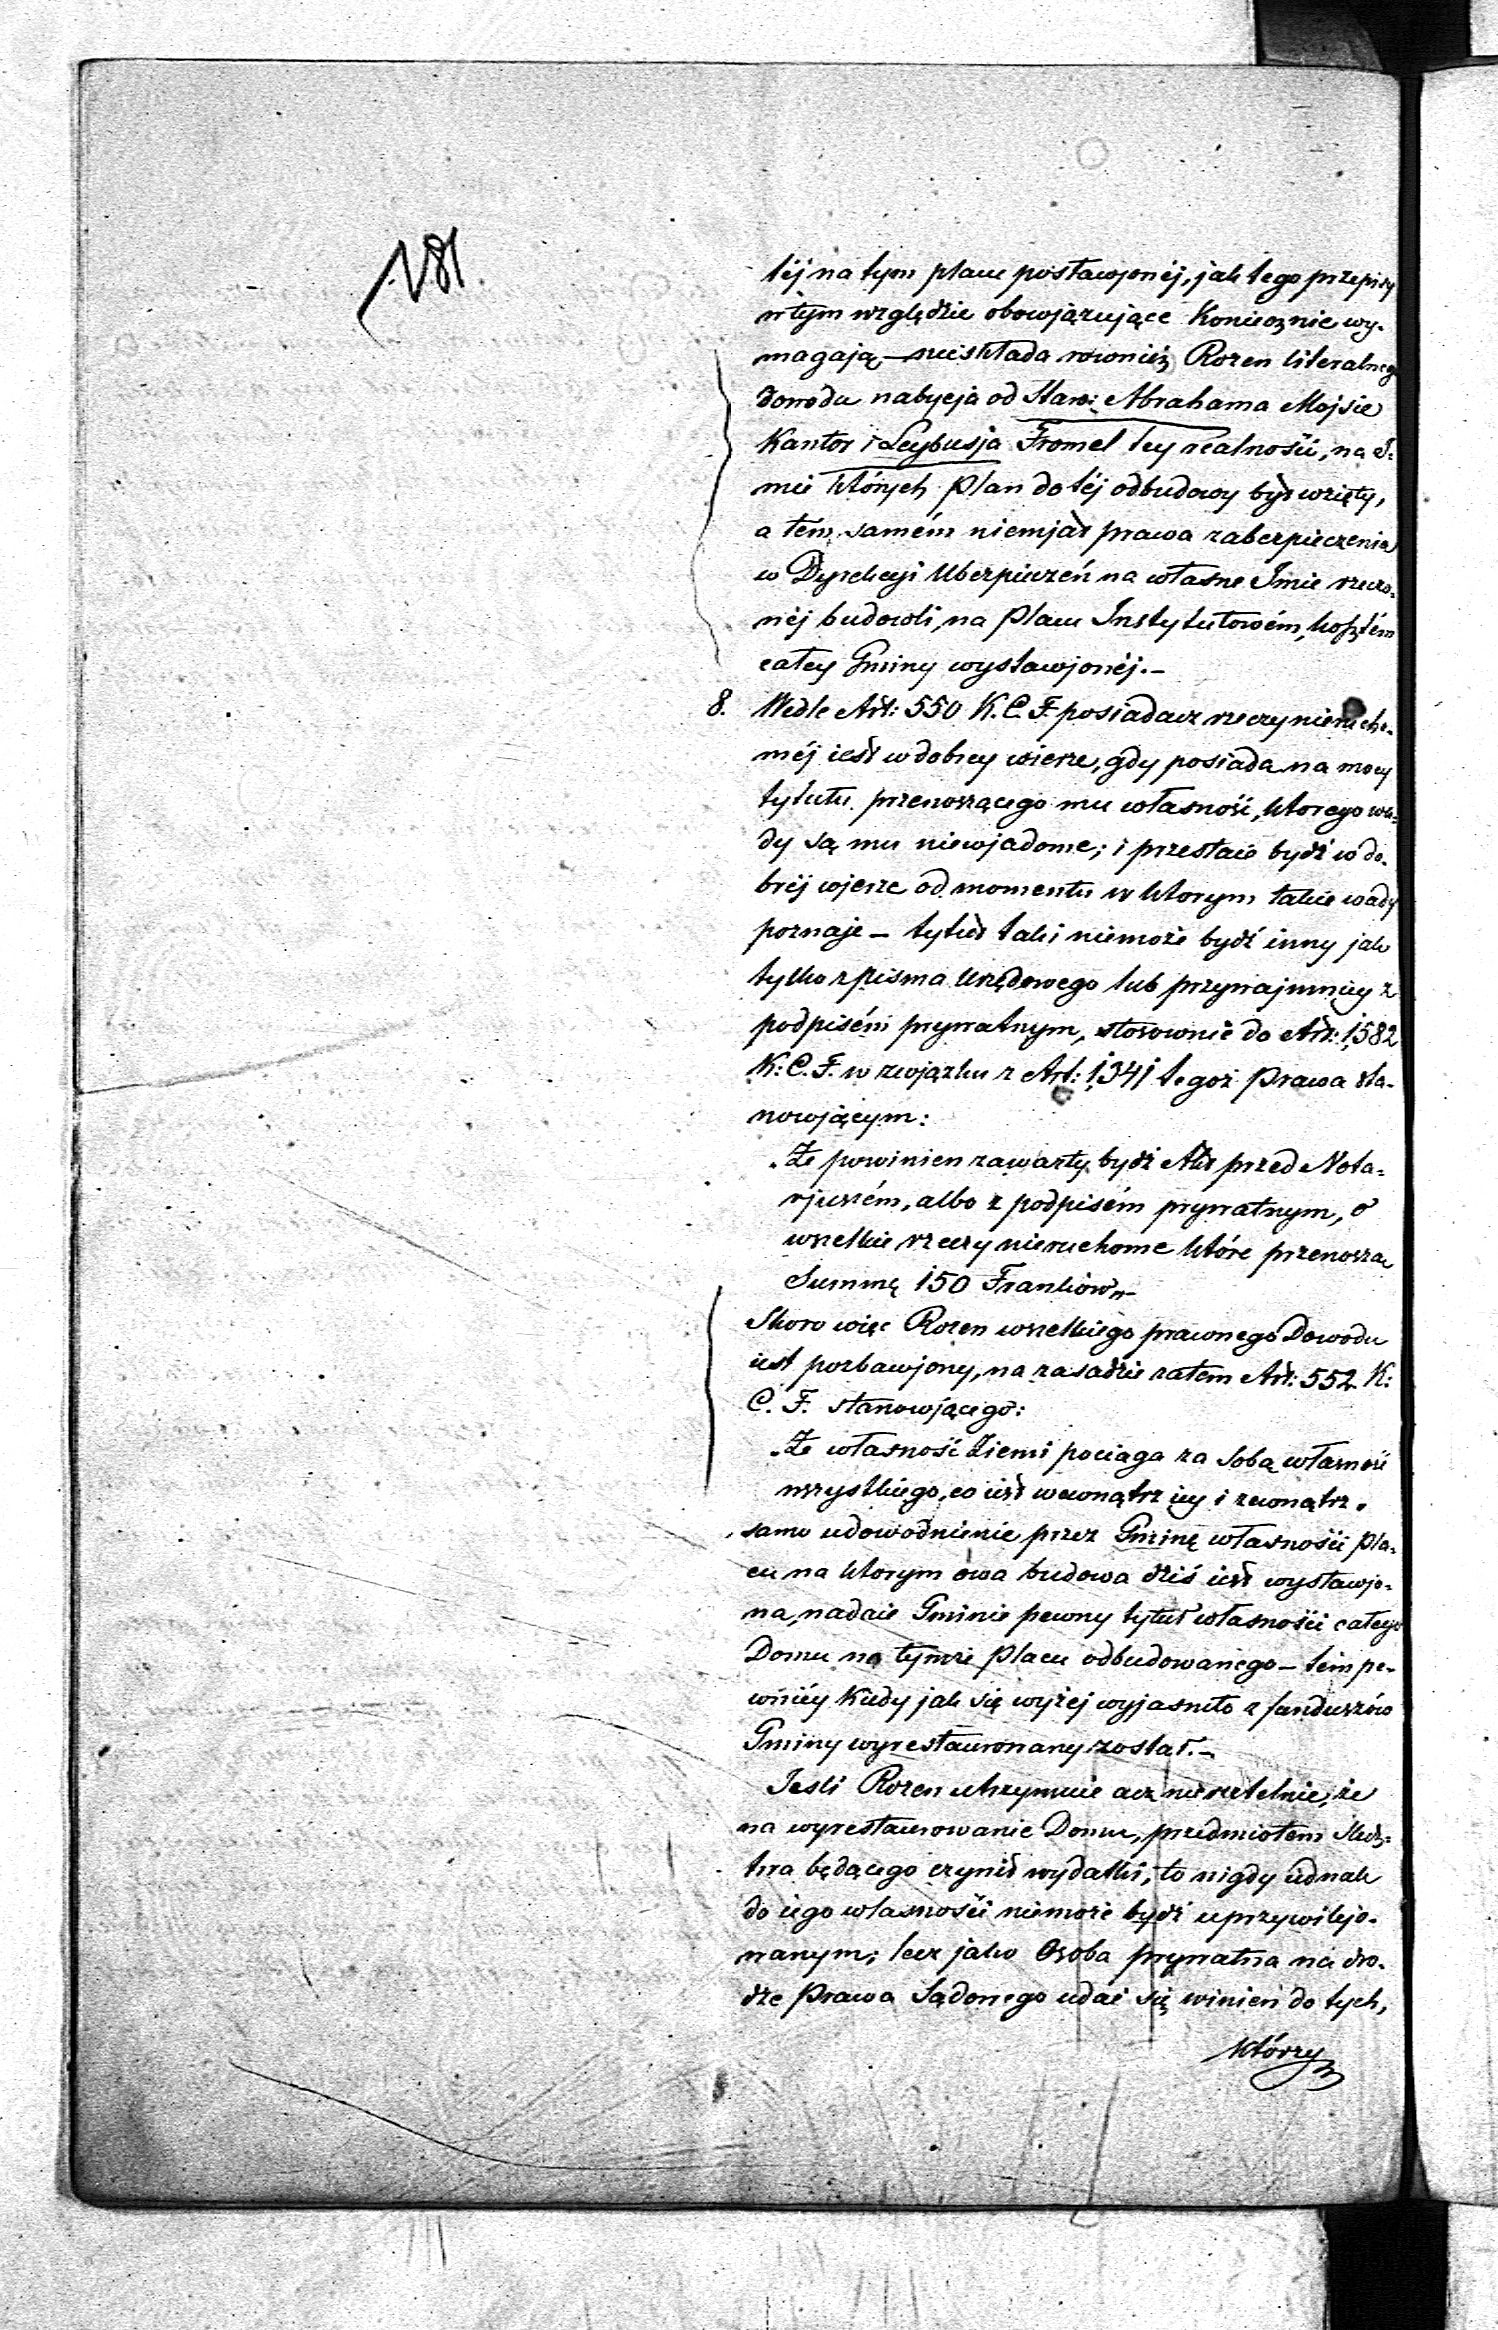 181.
téj na tym placu postawjonéj, jak tego przepisy
w tym względzie obowjązujące Koniecznie wy-
magają — nieskłada rownież Rozen literalnego
dowodu nabycja od Staro: Abrahama Mojsie
Kantor i Leybusja Fromel tey realności, na I-
mie których plan do téj odbudowy był wzięty,
a tem samém niemjał prawa zabezpieczenia
w Dyrekcyi Ubezpieczeń na własne Imie rzeczo-
néj budowli, na placu Instytutowém, kosztém
całey Gminy wystawjonéj.—
8. Wedle Art: 550 K. C. F. posiadacz rzeczy nierucho-
méj iest w dobrey wierze, gdy posiada na mocy
tytułu przenoszącego mu własność, ktorego wa-
dy są mu niewjadome; i przestaie bydź w do-
bréj wjerze od momentu w ktorym takie wady
poznaje — tytuł taki niemoże bydź inny jak
tylko z pisma Urzędowego lub przynajmniey z
podpisém prywatnym, stosownie do Art: 1582
K: C. F. w związku z Art: 1341 tegoż Prawa sta-
nowjącym:
„Że powinien zawarty bydź Akt przed Nota-
rjuszém, albo z podpisém prywatnym, o
wszelkie rzeczy nieruchome które przenoszą
Summę 150 Franków„—
Skoro więc Rozen wszelkiego prawnego Dowodu
iest pozbawjony, na zasadzie zatem Art: 552 K:
C. F. stanowjącego:
„Że własność Ziemi pociąga za Sobą własność
wszystkiego, co iest wewnątrz iey i zewnątrz„
samo udowodnienie przez Gminę własności pla-
cu na ktorym owa budowa dziś iest wystawjo-
na, nadaie Gminie pewny tytuł własności całego
Domu na tymże placu odbudowanego — tém pe-
wniéy kiedy jak się wyżéj wyjasniło z funduszów
Gminy wyrestaurowany został.—
Jesli Rozen utrzymuie acz nierzetelnie, że
na wyrestaurowanie Domu, przedmiotem Śledz-
twa będącego czynił wydatki, to nigdy iednak
do iego własności niemoże bydź uprzywilejo-
wanym; lecz jako Osoba prywatna na dro-
dze Prawa Sądowego udać się winien do tych,
którzy